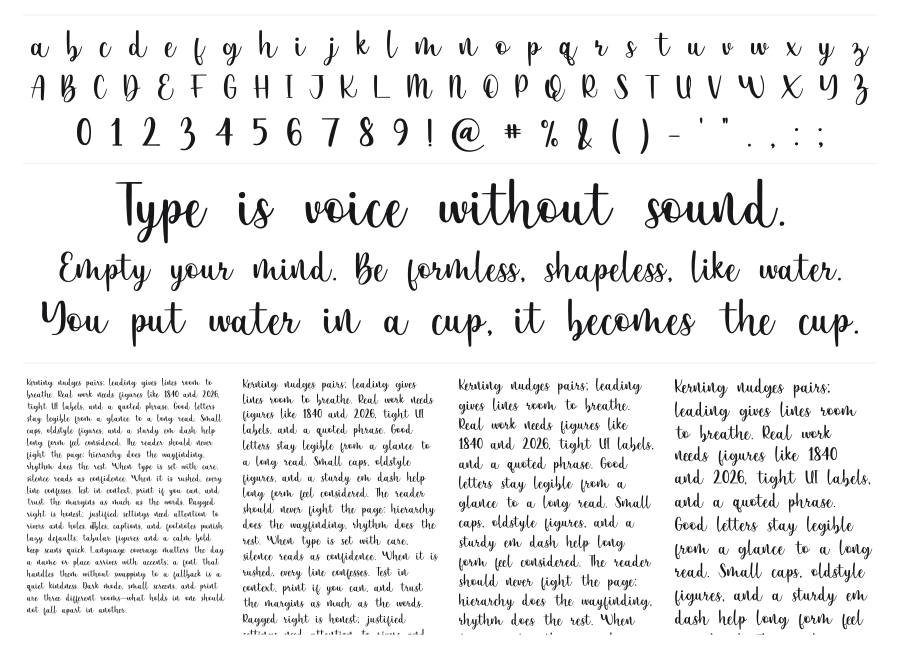 a b c d e f g h i j k l m n o p q r s t u v w x y z
A B C D E F G H I J K L M N O P Q R S T U V W X Y Z
0 1 2 3 4 5 6 7 8 9 ! @ # % & ( ) - ' " . , : ;
Type is voice without sound.
Empty your mind. Be formless, shapeless, like water.
You put water in a cup, it becomes the cup.
Kerning nudges pairs; leading gives lines room to
breathe. Real work needs figures like 1840 and 2026,
tight UI labels, and a quoted phrase. Good letters
stay legible from a glance to a long read. Small
caps, oldstyle figures, and a sturdy em dash help
long form feel considered. The reader should never
fight the page; hierarchy does the wayfinding,
rhythm does the rest. When type is set with care,
silence reads as confidence. When it is rushed, every
line confesses. Test in context, print if you can, and
trust the margins as much as the words. Ragged
right is honest; justified settings need attention to
rivers and holes. Tables, captions, and footnotes punish
lazy defaults; tabular figures and a calm bold
keep scans quick. Language coverage matters the day
a name or place arrives with accents; a font that
handles them without swapping to a fallback is a
quiet kindness. Dark mode, small screens, and print
are three different rooms—what holds in one should
not fall apart in another.
Kerning nudges pairs; leading gives
lines room to breathe. Real work needs
figures like 1840 and 2026, tight UI
labels, and a quoted phrase. Good
letters stay legible from a glance to
a long read. Small caps, oldstyle
figures, and a sturdy em dash help
long form feel considered. The reader
should never fight the page; hierarchy
does the wayfinding, rhythm does the
rest. When type is set with care,
silence reads as confidence. When it is
rushed, every line confesses. Test in
context, print if you can, and trust
the margins as much as the words.
Ragged right is honest; justified
settings need attention to rivers and
Kerning nudges pairs; leading
gives lines room to breathe.
Real work needs figures like
1840 and 2026, tight UI labels,
and a quoted phrase. Good
letters stay legible from a
glance to a long read. Small
caps, oldstyle figures, and a
sturdy em dash help long
form feel considered. The reader
should never fight the page;
hierarchy does the wayfinding,
rhythm does the rest. When
Kerning nudges pairs;
leading gives lines room
to breathe. Real work
needs figures like 1840
and 2026, tight UI labels,
and a quoted phrase.
Good letters stay legible
from a glance to a long
read. Small caps, oldstyle
figures, and a sturdy em
dash help long form feel